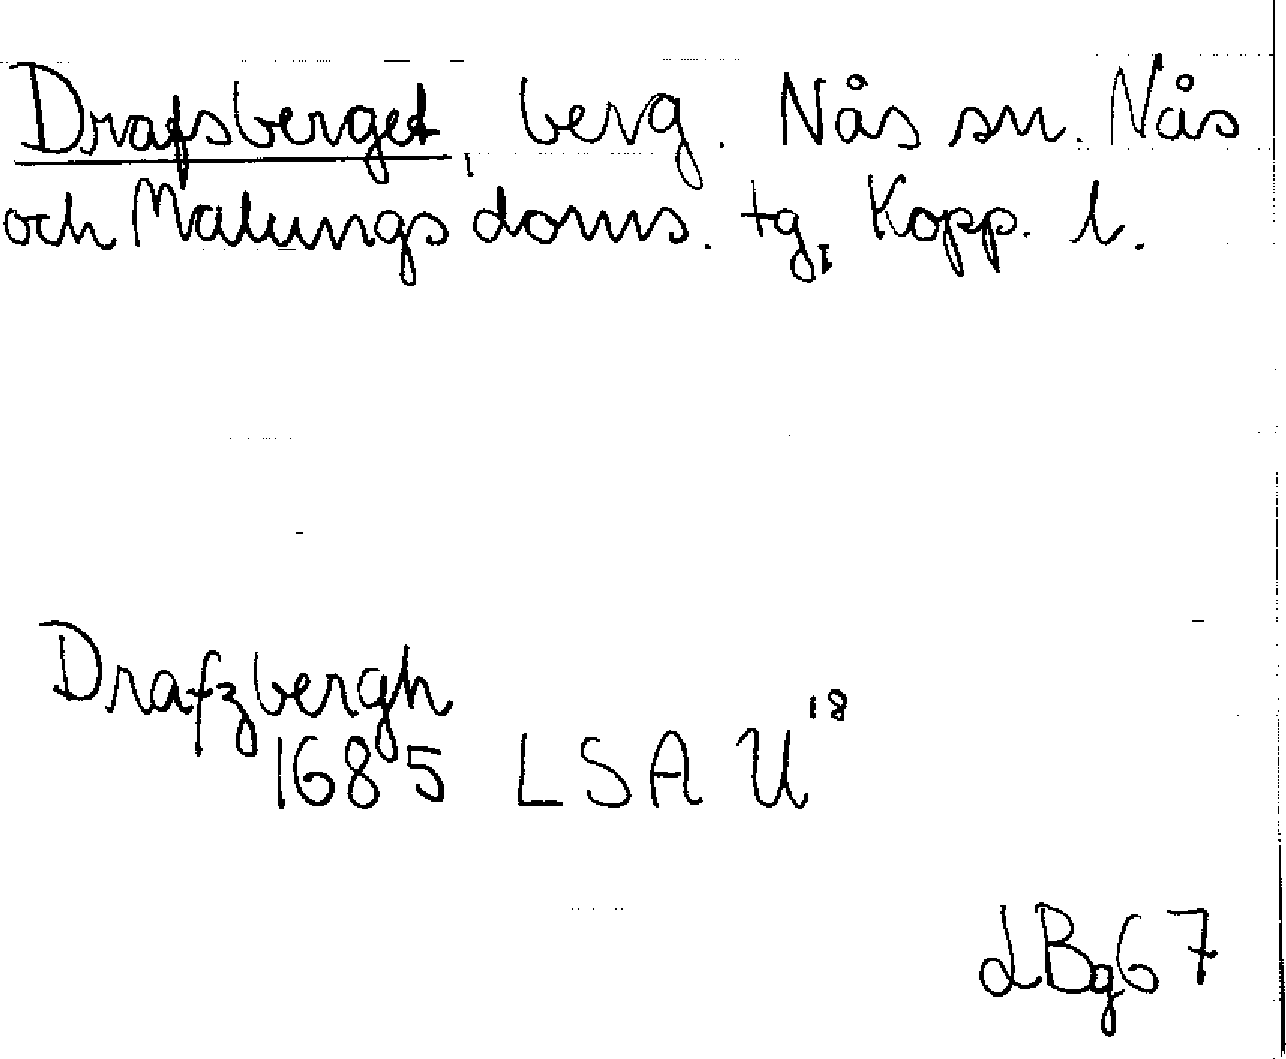 Drafsberget, berg. Nås sn. Nås
och Malungs doms. tg, Kopp. l.
Drafzbergh
1685 LSA U18
LBg67